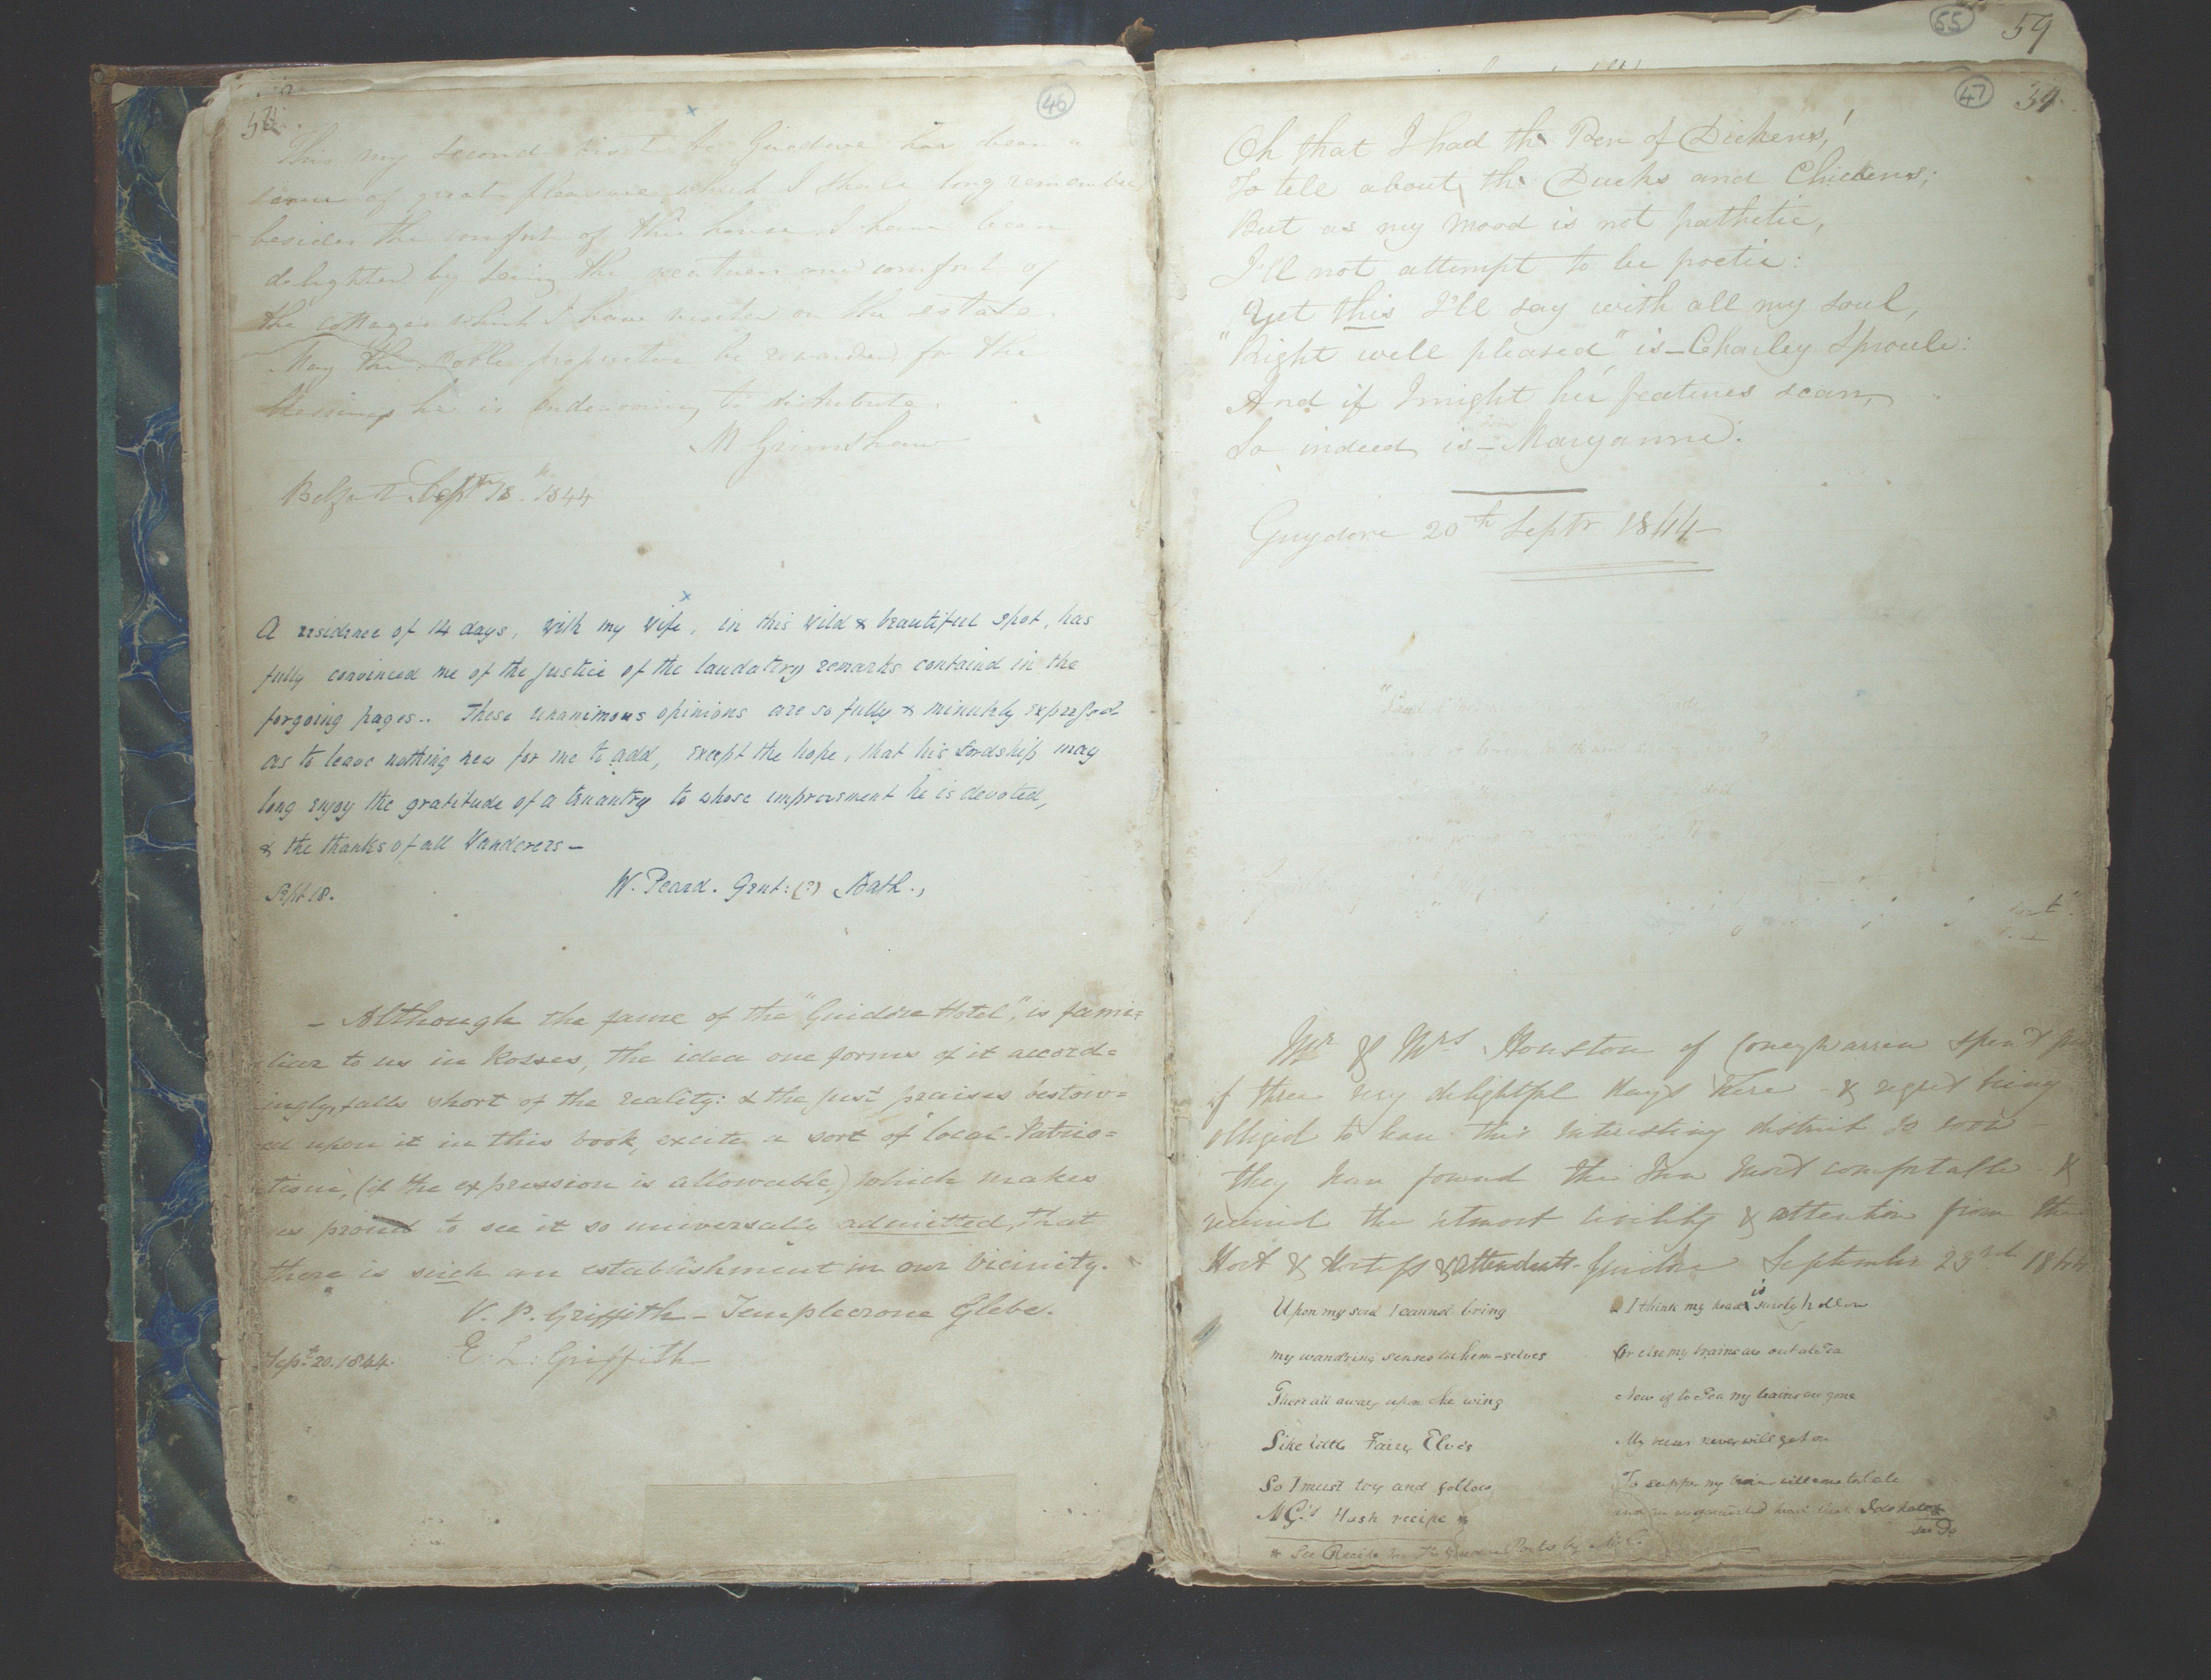 46
This my second visit to Guedore has been a
source of great pleasure which I shall long remember
besides the comfort of this house I have been
delighted by seeing the neatness and comfort of
the cottages which I have visited on the estate.
May the Noble proprietor be rewarded for the
blessings he is endeavouring to distribute.
M Grimshaw
Belfast Septr 18th 1844
A residence of 14 days, with my Wife, in this Wild & beautiful spot, has
fully convinced me of the justice of the laudatory remarks containd in the
forgoing pages.. These unanimous opinions are so fully & minutely expressed
as to leave nothing new for me to add, except the hope, that his Lordship may
long enjoy the gratitude of a tenantry to whose improvement he is devoted,
& the thanks of all Wanderers—
Sept 18.
W. Peard. Gent: (?) Bath.,
— Although the fame of the "Guidore Hotel", is fami=
liar to us in Rosses, the idea one forms of it accord=
ingly, falls short of the reality: & the just praises bestow=
ed upon it in this book, excite a sort of "local-Patrio=
tism", (if the expression is allowable,) which makes
us proud to see it so universally admitted, that
there is such an establishment in our vicinity.
V. P. Griffith — Templecrone Glebe.
Sept. 20. 1844. E. L: Griffith
55 59
47
Oh that I had the Pen of Dickens!
To tell about the Ducks and Chickens;
But as my mood is not pathetic,
I'll not attempt to be poetic:
Yet this I'll say with all my soul,
"Right well pleased" is—Charley Sproule:
And if I might her features scan,
So indeed is—Maryanne.
Guydore 20th Septr 1844—
Mr & Mrs Houston of Coneywarren spent
of three very delightful days here — & regret being
obliged to leave this interesting district so soon —
they have found the Inn most comfortable &
received the utmost civility & attention from the
Host & Hostess & attendants — Guidore September 23rd 1844
Upon my soul I cannot bring
my wand'ring senses to them-selves
There all away upon the wing
Like little Fairy Elves
So I must try and follow
M G's Hash recipe *
I think my head is surely hollow
Or else my brains are out at Tea
Now if to Tea my brains are gone
My verses never will get on
To supper my brain will come to late
* See Recipe in